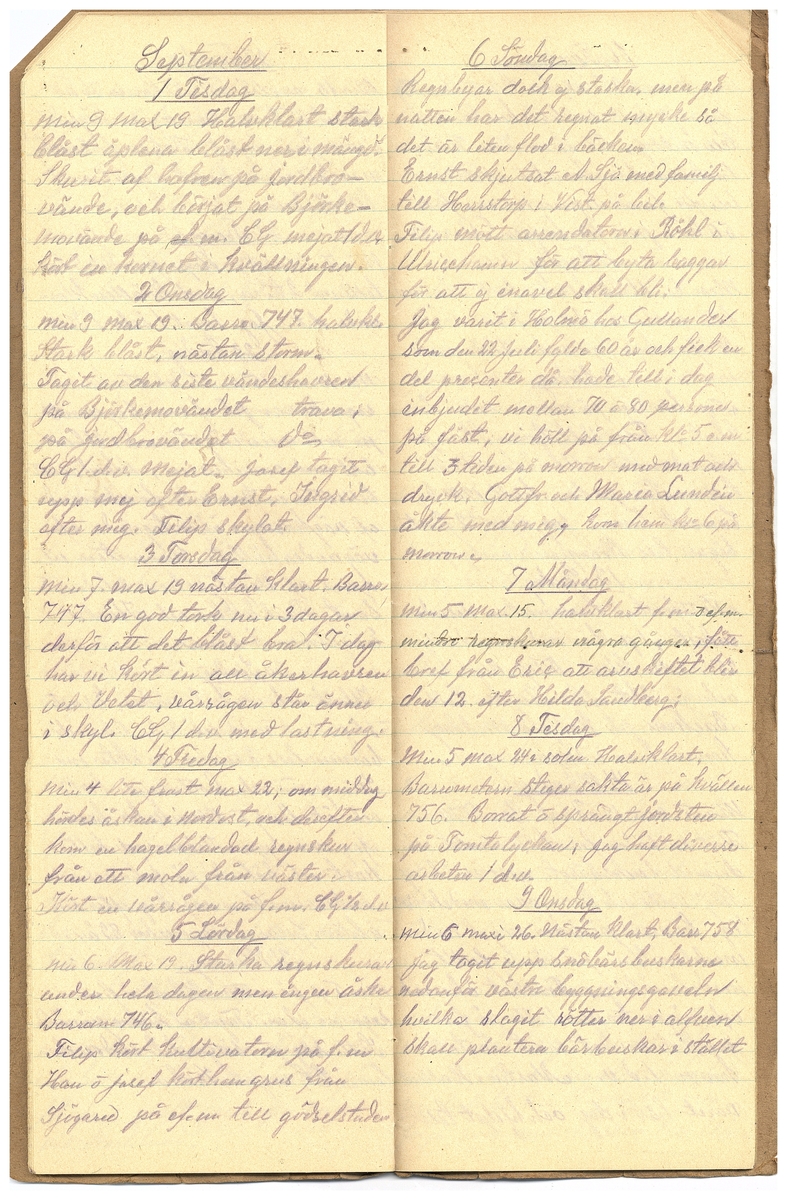 September
1 Tisdag
Min 9 Max 19 Halvklart stark
blåst äplena blåst ner i mängd.
Skurit af hafren på jordbro-
vände, och börjat på Björke-
movände på ef.m. CG mejat 1 d.v.
kört in kornet i kvällningen.
2 Onsdag
min 9 max 19. Barro 747. halvkl.
Stark blåst, nästan storm.
Tagit av den siste våndeshavren
på Björkemovändet trava;
på jordbrovändet Do
CG 1 d.v. mejat. Josef tagit
upp mej after Ernst. Ingrid
after mig. Filip skylat.
3 Torsdag
Min 7. max 19 nästan klart. Barro.
747. En god tork nu i 3 dagar
derför att det blåst bra. I dag
har vi kört in all åkerhavren
och Vetet, vårrågen står ännu
i skyl. CG 1 d.v. med lastning.
4 Fredag
Min 4 lite frost max 22, om middag
hördes åskan i Nordost, och derefter
kom en hagelblandad regnskur
från ett moln från väster.
Kört in vårrågen på f.m. CG 1/2 d.v
5 Lördag
min 6. Max 19. Starka regnskurar
under hela dagen men ingen åska
Barrom 746.
Filip kört kultivatorn på f.m
Han o josef kört hungrus från
Sjögared på ef.m till gödselstaden
6 Söndag
Regnbyar dock ej starka, men på
natten har det regnat mycke så
det är liten flod i bäcken.
Ernst skjutsat A. Sjö med familj
till Horrstorp i Vist på bil.
Filip mött arrendatorn Röhl i
Ulricehamn för att byta baggar
för att ej inavel skall bli.
Jag varit i Holmö hos Gullander
som den 22 juli fylde 60 år och fick en
del presenter då. hade till i dag
inbjudit mellan 70 à 80 personer
på fäst, vi höll på från kl 5 e m
till 3 tiden på morron med mat och
dryck. Gottfr. och Maria Lundén
åkte med mig, kom hem kl 6 på
morron.
7 Måndag
Min 5 Max 15. halvklart f.m. o ef.m.
mindre regnskurar några gånger, fått
bref från Eric att arvskiftet blir
den 12. efter Hilda Sandberg;
8 Tisdag
Min 5 max 24 i solen Halvklart.
Barrometern stiger sakta är på kvällen
756. Borrat o sprängt jordsten
på Tomtalyckan, jag haft diverse
arbeten 1 d.v.
9 Onsdag
min 6 maxi 26. Nästan klart, Barr 758
jag tagit upp snöbärsbuskarne
nedanför västra byggningsgaveln
hvilka slagit rötter ner i alfven
skall plantera bärbuskar i stället